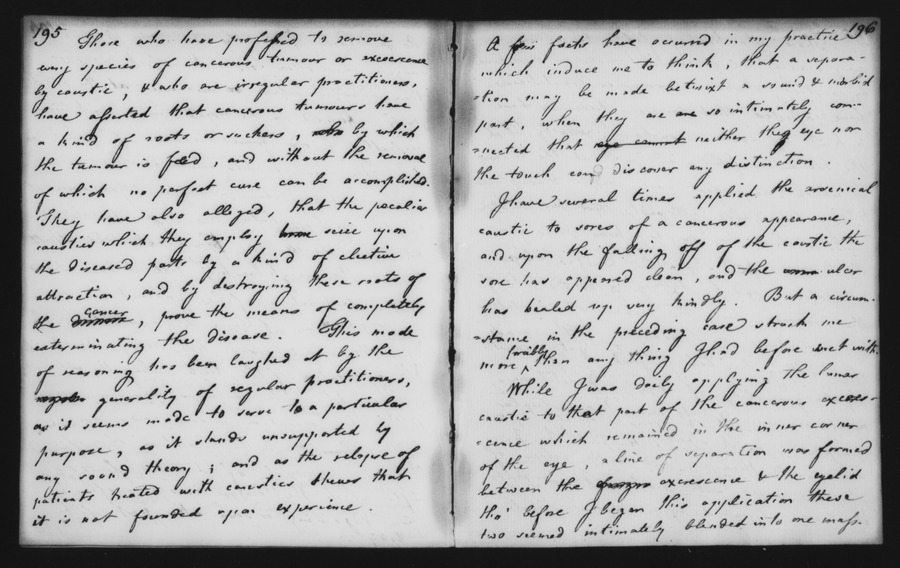 195
Those who have professed to remove
every species of cancerous tumour or excrescence
by caustic, & who are irregular practitioners,
have asserted that cancerous tumours have
a kind of roots or suckers, by which
the tumour is feed, and without the removal
of which no perfect cure can be accomplished.
They have also alleged, that the peculiar
caustics which they employ seize upon
the diseased parts by a kind of elective
attraction, and by destroying these roots of
the cancer, prove the means of completely
exterminating the disease. This mode
of reasoning has been laughed at by the
generality of regular practitioners,
as it seems made to serve a particular
purpose, as it stands unsupported by
any sound theory; and as the relapse of
patients treated with caustics shews that
it is not founded upon experience.
196
A few facts have occurred in my practice
which induce me to think, that a separa-
-tion may be made betwixt a sound & morbid
part, when they are so intimately con-
-nected that eye cannot neither the eye nor
the touch can discover any distinction.
I have several times applied the arsenical
caustic to sores of a cancerous appearance,
and upon the falling off of the caustic the
sore has appeared clean, and the ulcer
has healed up very kindly. But a circum-
-stance in the preceding case struck me
more forcibly than any thing I had before met with.
While I was daily applying the lunar
caustic to that part of the cancerous excres-
-cence which remained in the inner corner
of the eye, a line of separation was formed
between the excrescence & the eyelid
tho' before I began this application these
two seemed intimately blended into one mass.